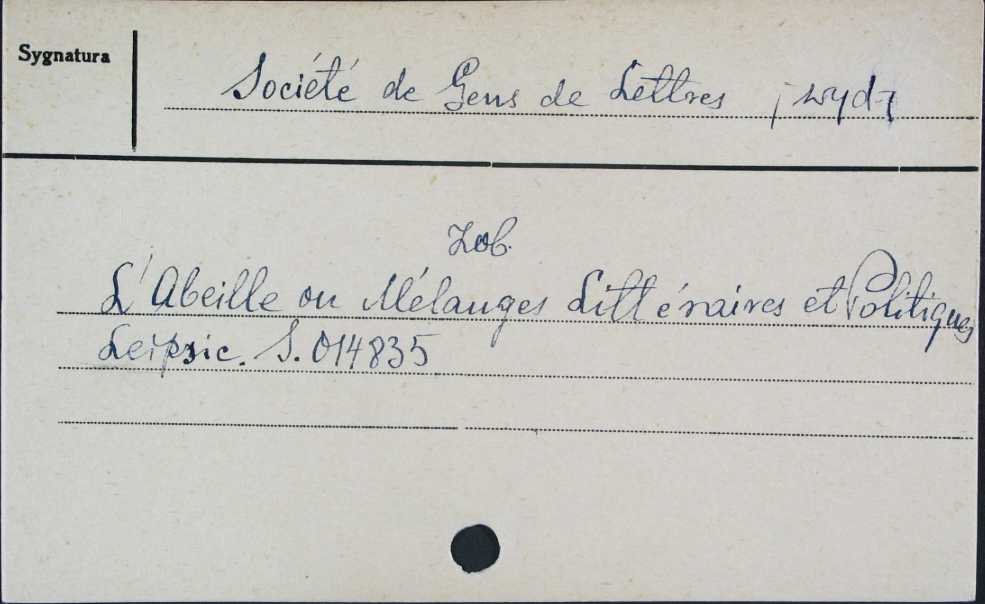 Sygnatura
Société de Gens de Lettres ; wyd.
Zob.
L'Abeille ou Mélanges Littéraires et Politiques
Leipsic. S. 014835